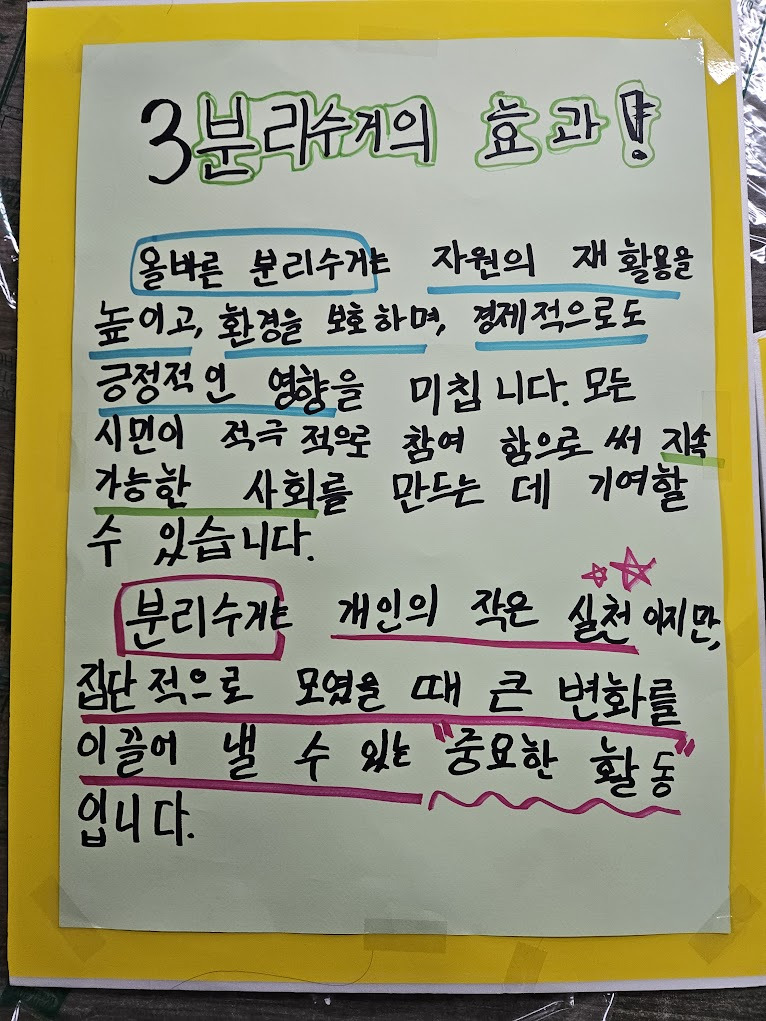 3 분리수거의 효과!
올바른 분리수거는 자원의 재활용을
높이고, 환경을 보호하며, 경제적으로도
긍정적인 영향을 미칩니다. 모든
시민이 적극적으로 참여 함으로 써 지속
가능한 사회를 만드는 데 기여할
수 있습니다.
분리수거는 개인의 작은 실천이지만,
집단적으로 모였을 때 큰 변화를
이끌어 낼 수 있는 "중요한 활동"
입니다.